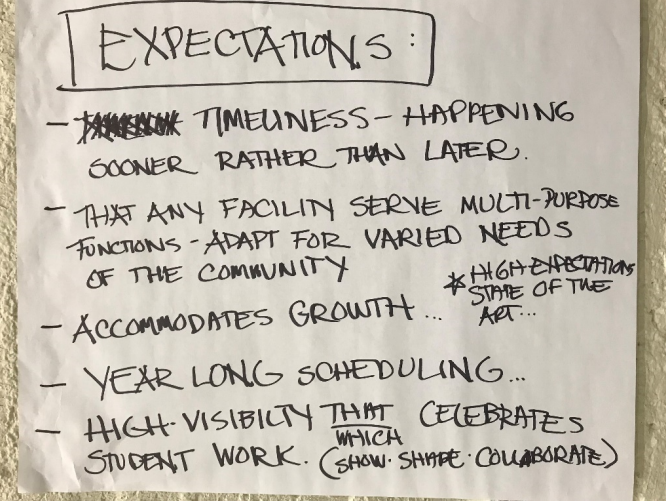 EXPECTATIONS:
- TIMELINESS - HAPPENING
SOONER RATHER THAN LATER.
- THAT ANY FACILITY SERVE MULTI-PURPOSE
FUNCTIONS - ADAPT FOR VARIED NEEDS
OF THE COMMUNITY
* HIGH EXPECTATIONS
STATE OF THE
ART...
- ACCOMMODATES GROWTH...
- YEAR LONG SCHEDULING...
- HIGH-VISIBILTY THAT CELEBRATES
WHICH
STUDENT WORK. (SHOW · SHAPE · COLLABORATE)